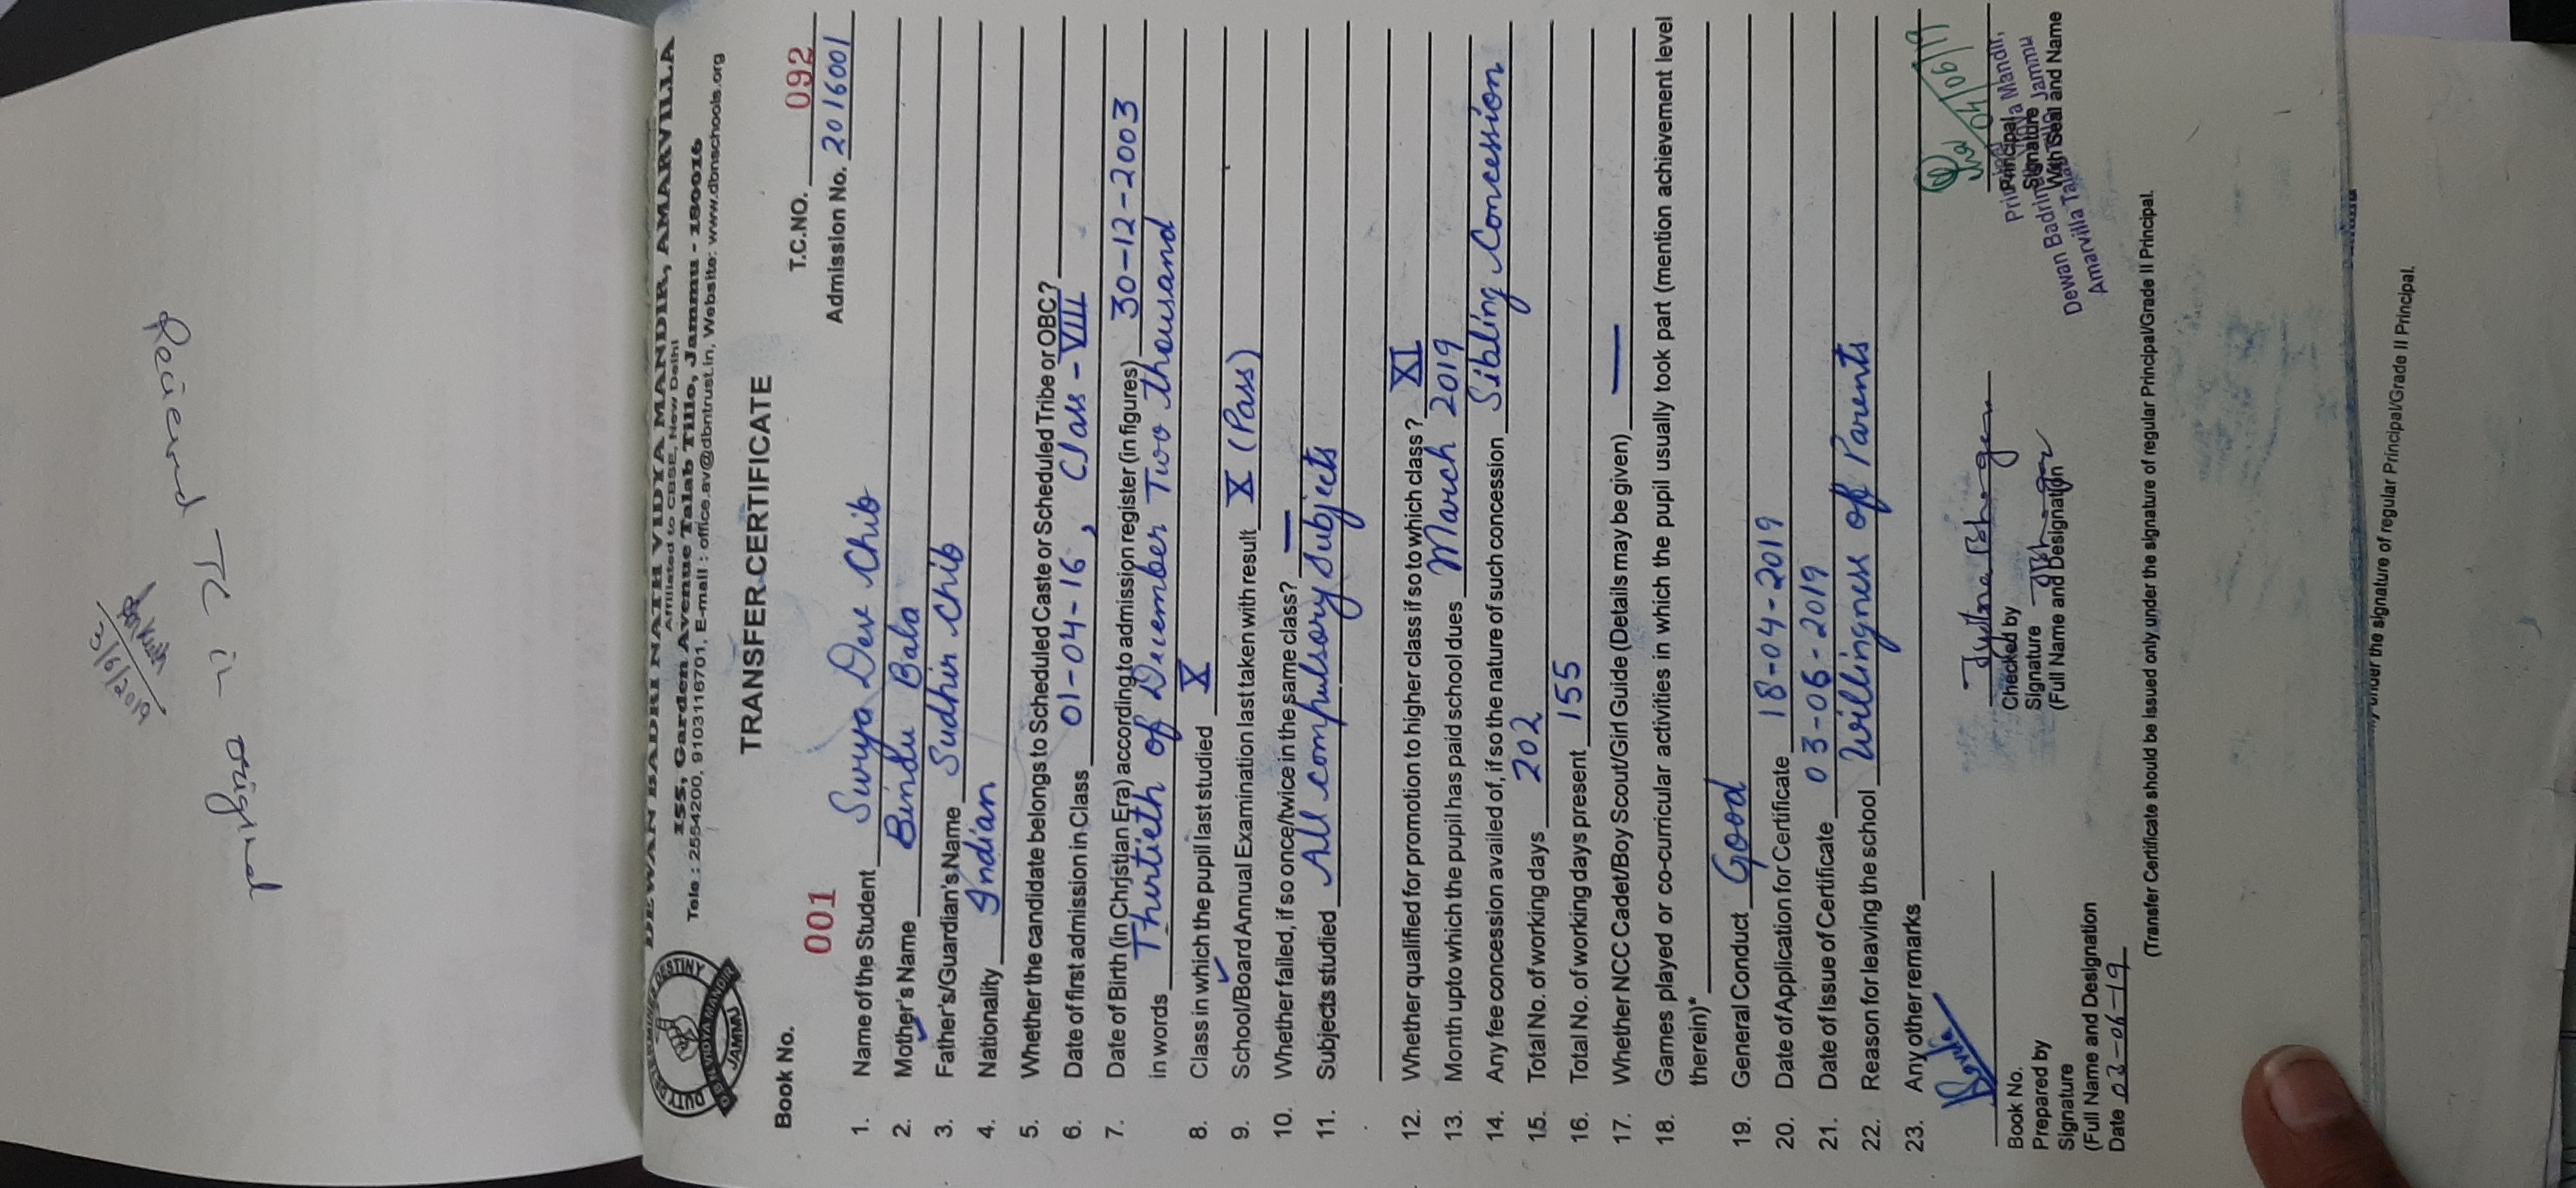 Received TC in
original
DEWAN BADRI NATH VIDYA MANDIR, AMARVILLA
Affiliated to CBSE, New Delhi
155, Garden Avenue Talab Tillo, Jammu - 180016
Tele : 2554200, 9103116701, E-mail : office.av@dbntrust.in, Website: www.dbnschools.org
DBN VIDYA MANDIR
JAMMU
TRANSFER CERTIFICATE
Book No. 001 T.C.NO. 092
Admission No. 2016001
1. Name of the Student Surya Dev Chib
2. Mother's Name Bindu Bala
3. Father's/Guardian's Name Sudhir Chib
4. Nationality Indian
5. Whether the candidate belongs to Scheduled Caste or Scheduled Tribe or OBC?
6. Date of first admission in Class 01-04-16, Class - VIII
7. Date of Birth (in Christian Era) according to admission register (in figures) 30-12-2003
in words Thirtieth of December Two thousand
8. Class in which the pupil last studied X
9. School/Board Annual Examination last taken with result X (Pass)
10. Whether failed, if so once/twice in the same class? —
11. Subjects studied All compulsory subjects
12. Whether qualified for promotion to higher class if so to which class? XI
13. Month upto which the pupil has paid school dues March 2019
14. Any fee concession availed of, if so the nature of such concession Sibling Concession
15. Total No. of working days 202
16. Total No. of working days present 155
17. Whether NCC Cadet/Boy Scout/Girl Guide (Details may be given) —
18. Games played or co-curricular activities in which the pupil usually took part (mention achievement level
therein)*
19. General Conduct Good
20. Date of Application for Certificate 18-04-2019
21. Date of Issue of Certificate 03-06-2019
22. Reason for leaving the school Willingness of Parents
23. Any other remarks
04/06/19
Book No.
Prepared by
Signature
(Full Name and Designation
Date 03-06-19
Checked by
Signature
(Full Name and Designation
Principal
Signature
With Seal and Name
Principal
Dewan Badrinath Vidya Mandir,
Amarvilla Talab Tillo Jammu
(Transfer Certificate should be issued only under the signature of regular Principal/Grade II Principal.
under the signature of regular Principal/Grade II Principal.